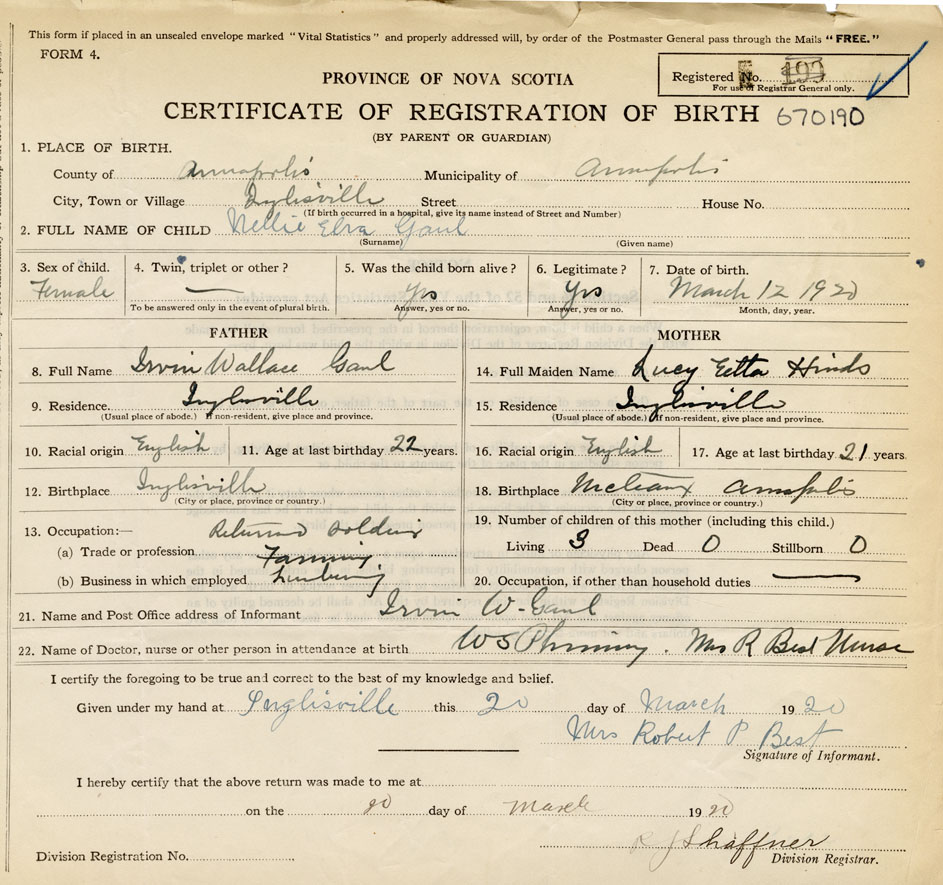 This form if placed in an unsealed envelope marked "Vital Statistics" and properly addressed will, by order of the Postmaster General pass through the Mails "FREE."
FORM 4.
PROVINCE OF NOVA SCOTIA
Registered No. 190
For use of Registrar General only.
CERTIFICATE OF REGISTRATION OF BIRTH 670190
(BY PARENT OR GUARDIAN)
1. PLACE OF BIRTH.
County of Annapolis Municipality of Annapolis
City, Town or Village Inglisville Street House No.
(If birth occurred in a hospital, give its name instead of Street and Number)
2. FULL NAME OF CHILD Nellie Elva Gaul
(Surname) (Given name)
3. Sex of child. 4. Twin, triplet or other? 5. Was the child born alive? 6. Legitimate? 7. Date of birth.
Female — Yes Yes March 12 1920
To be answered only in the event of plural birth. Answer, yes or no. Answer, yes or no. Month, day, year.
FATHER
8. Full Name Irvin Wallace Gaul
9. Residence Inglisville
(Usual place of abode.) If non-resident, give place and province.
10. Racial origin English 11. Age at last birthday 22 years.
12. Birthplace Inglisville
(City or place, province or country.)
13. Occupation:— Returned Soldier
(a) Trade or profession Farming
(b) Business in which employed Lumbering
MOTHER
14. Full Maiden Name Lucy Etta Hinds
15. Residence Inglisville
(Usual place of abode.) If non-resident, give place and province.
16. Racial origin English 17. Age at last birthday 21 years.
18. Birthplace Annapolis
(City or place, province or country.)
19. Number of children of this mother (including this child.)
Living 3 Dead 0 Stillborn 0
20. Occupation, if other than household duties —
21. Name and Post Office address of Informant Irvin W. Gaul
22. Name of Doctor, nurse or other person in attendance at birth W S Phinney. Mrs R Best Nurse
I certify the foregoing to be true and correct to the best of my knowledge and belief.
Given under my hand at Inglisville this 20 day of March 1920
Mrs Robert P Best
Signature of Informant.
I hereby certify that the above return was made to me at
on the 20 day of March 1920
R J Shaffner
Division Registration No. Division Registrar.